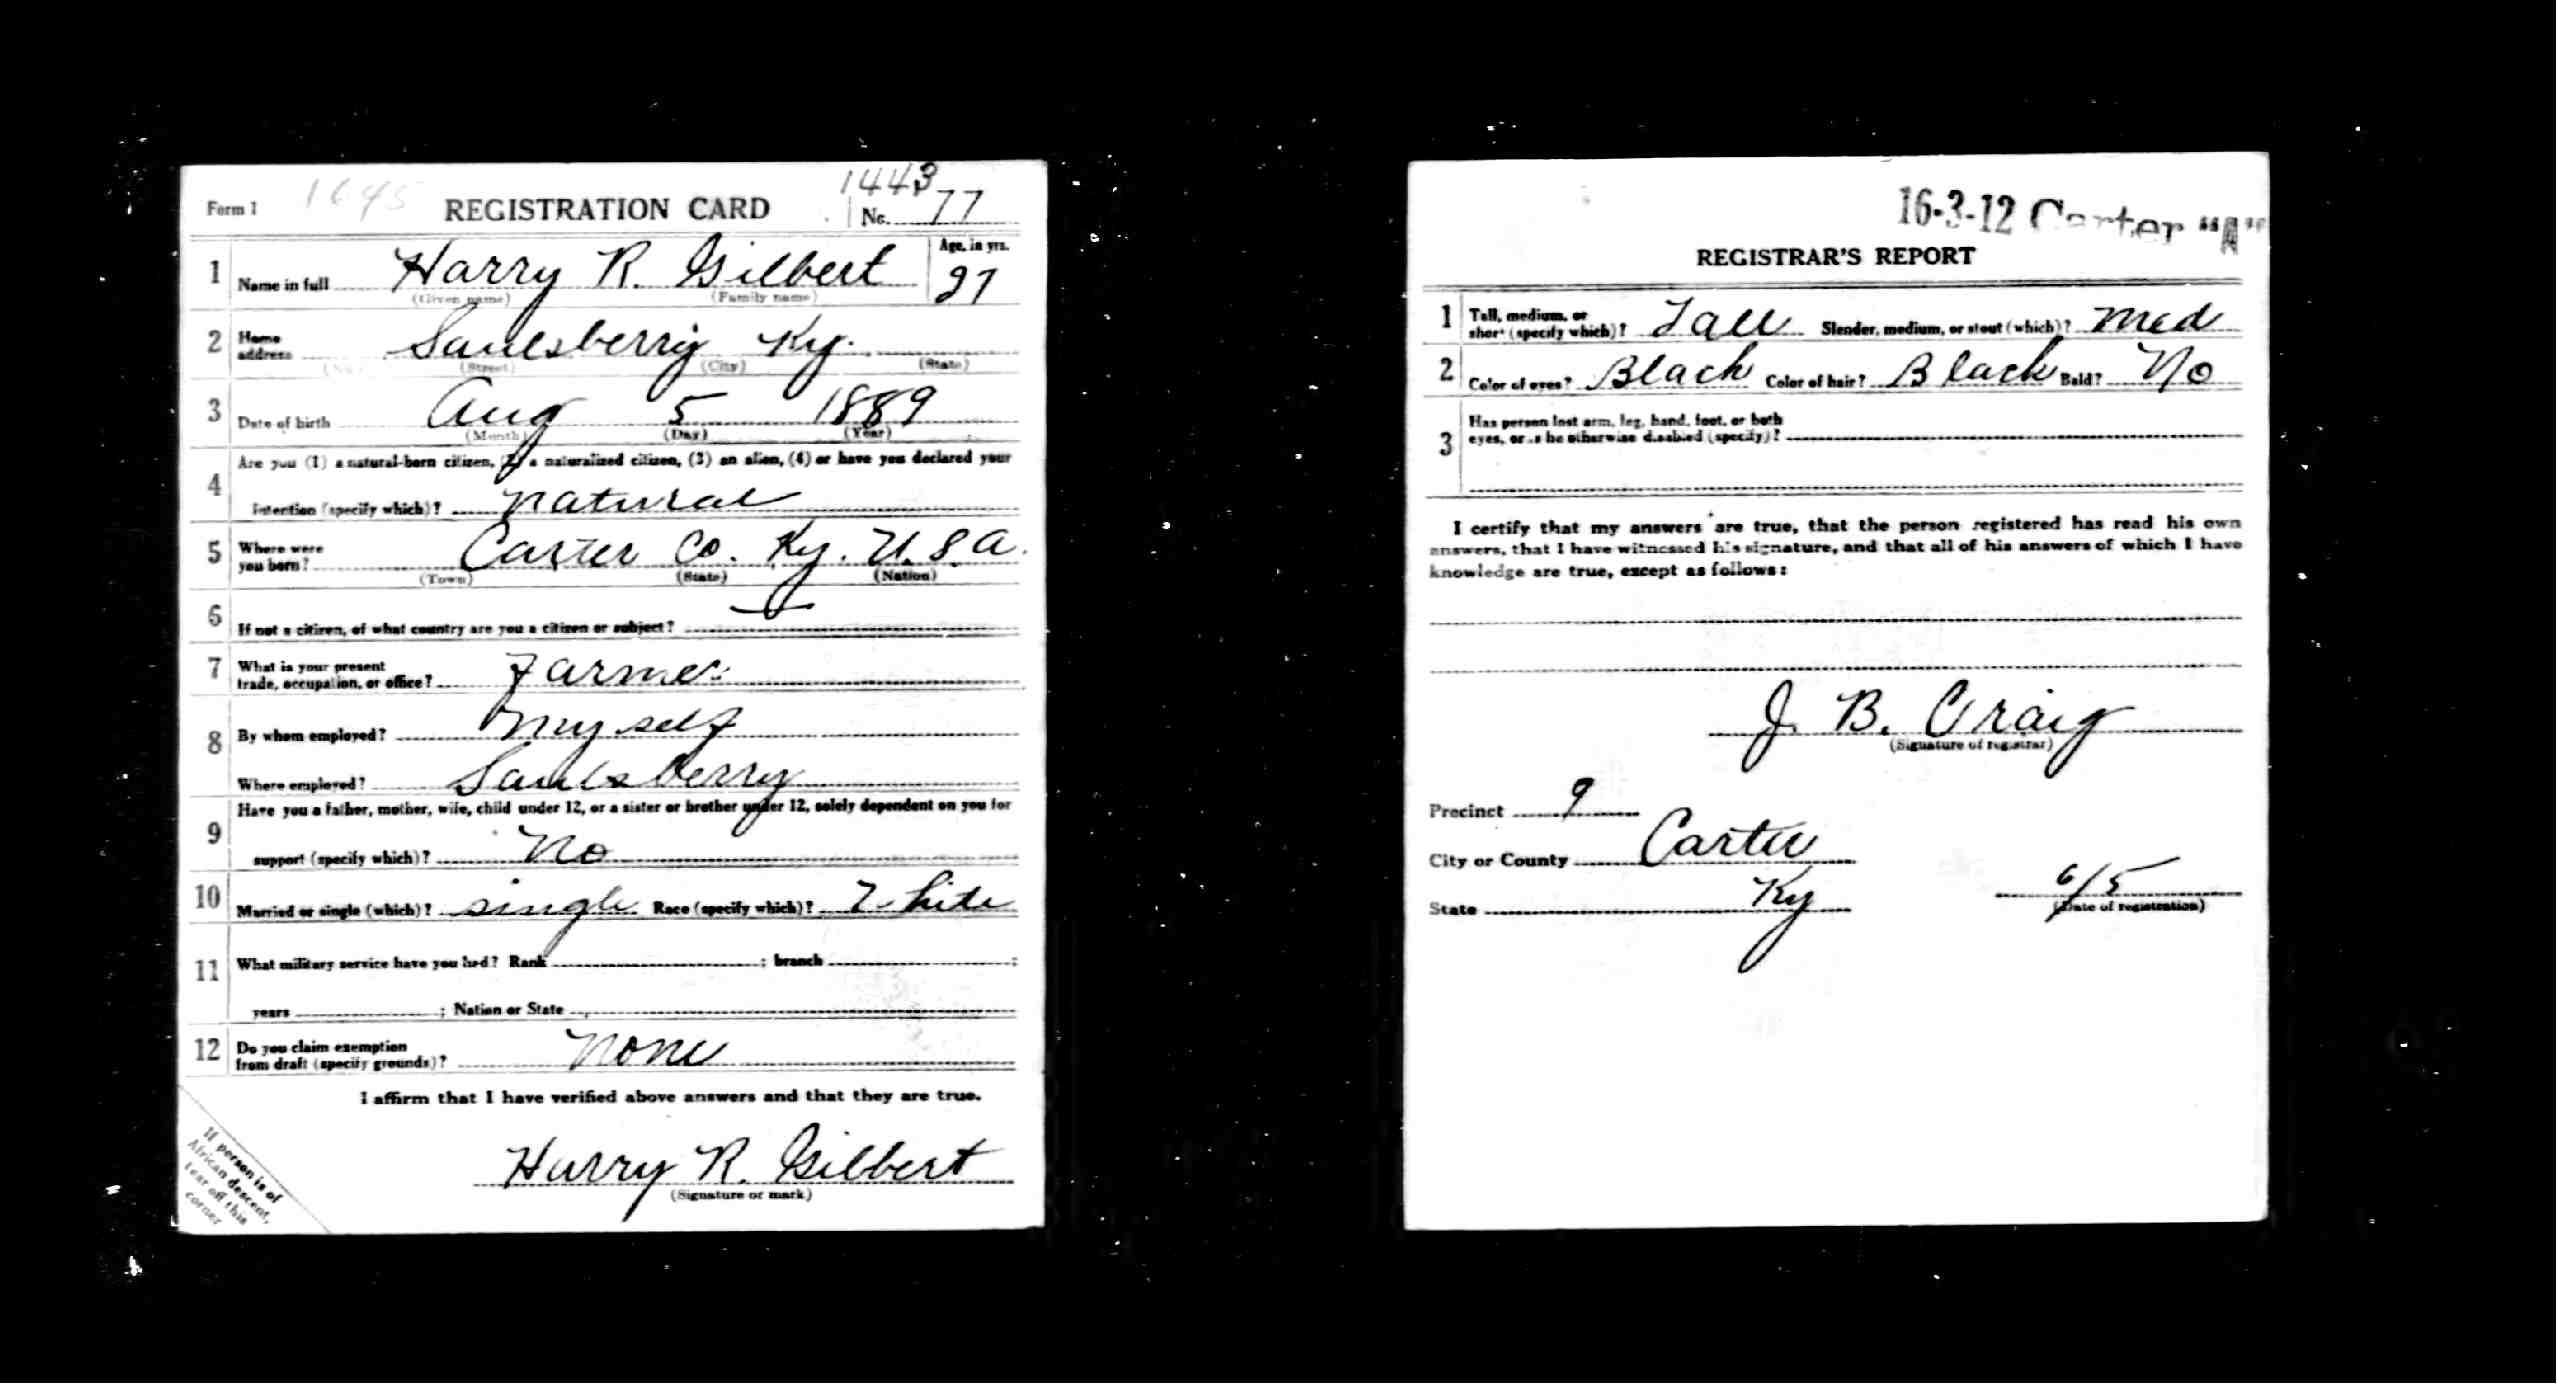 1443
Form 1 1645 REGISTRATION CARD No. 77
1 Name in full Harry R. Gilbert Age, in yrs. 27
(Given name) (Family name)
2 Home address Saulsberry Ky.
(No.) (Street) (City) (State)
3 Date of birth Aug 5 1889
(Month) (Day) (Year)
4 Are you (1) a natural-born citizen, (2) a naturalized citizen, (3) an alien, (4) or have you declared your
intention (specify which)? natural
5 Where were you born? Carter Co. Ky. U.S.A.
(Town) (State) (Nation)
6 If not a citizen, of what country are you a citizen or subject?
7 What is your present
trade, occupation, or office? Farmer
8 By whom employed? myself
Where employed? Saulsberry
9 Have you a father, mother, wife, child under 12, or a sister or brother under 12, solely dependent on you for
support (specify which)? No
10 Married or single (which)? single Race (specify which)? White
11 What military service have you had? Rank ; branch ;
years ; Nation or State
12 Do you claim exemption
from draft (specify grounds)? None
I affirm that I have verified above answers and that they are true.
Harry R. Gilbert
(Signature or mark)
If person is of
African descent,
tear off this
corner
16-3-12 Carter "A"
REGISTRAR'S REPORT
1 Tall, medium, or
short (specify which)? Tall Slender, medium, or stout (which)? Med
2 Color of eyes? Black Color of hair? Black Bald? No
3 Has person lost arm, leg, hand, foot, or both
eyes, or is he otherwise disabled (specify)?
I certify that my answers are true, that the person registered has read his own
answers, that I have witnessed his signature, and that all of his answers of which I have
knowledge are true, except as follows:
J. B. Craig
(Signature of registrar)
Precinct 9
City or County Carter
State Ky 6/5
(Date of registration)